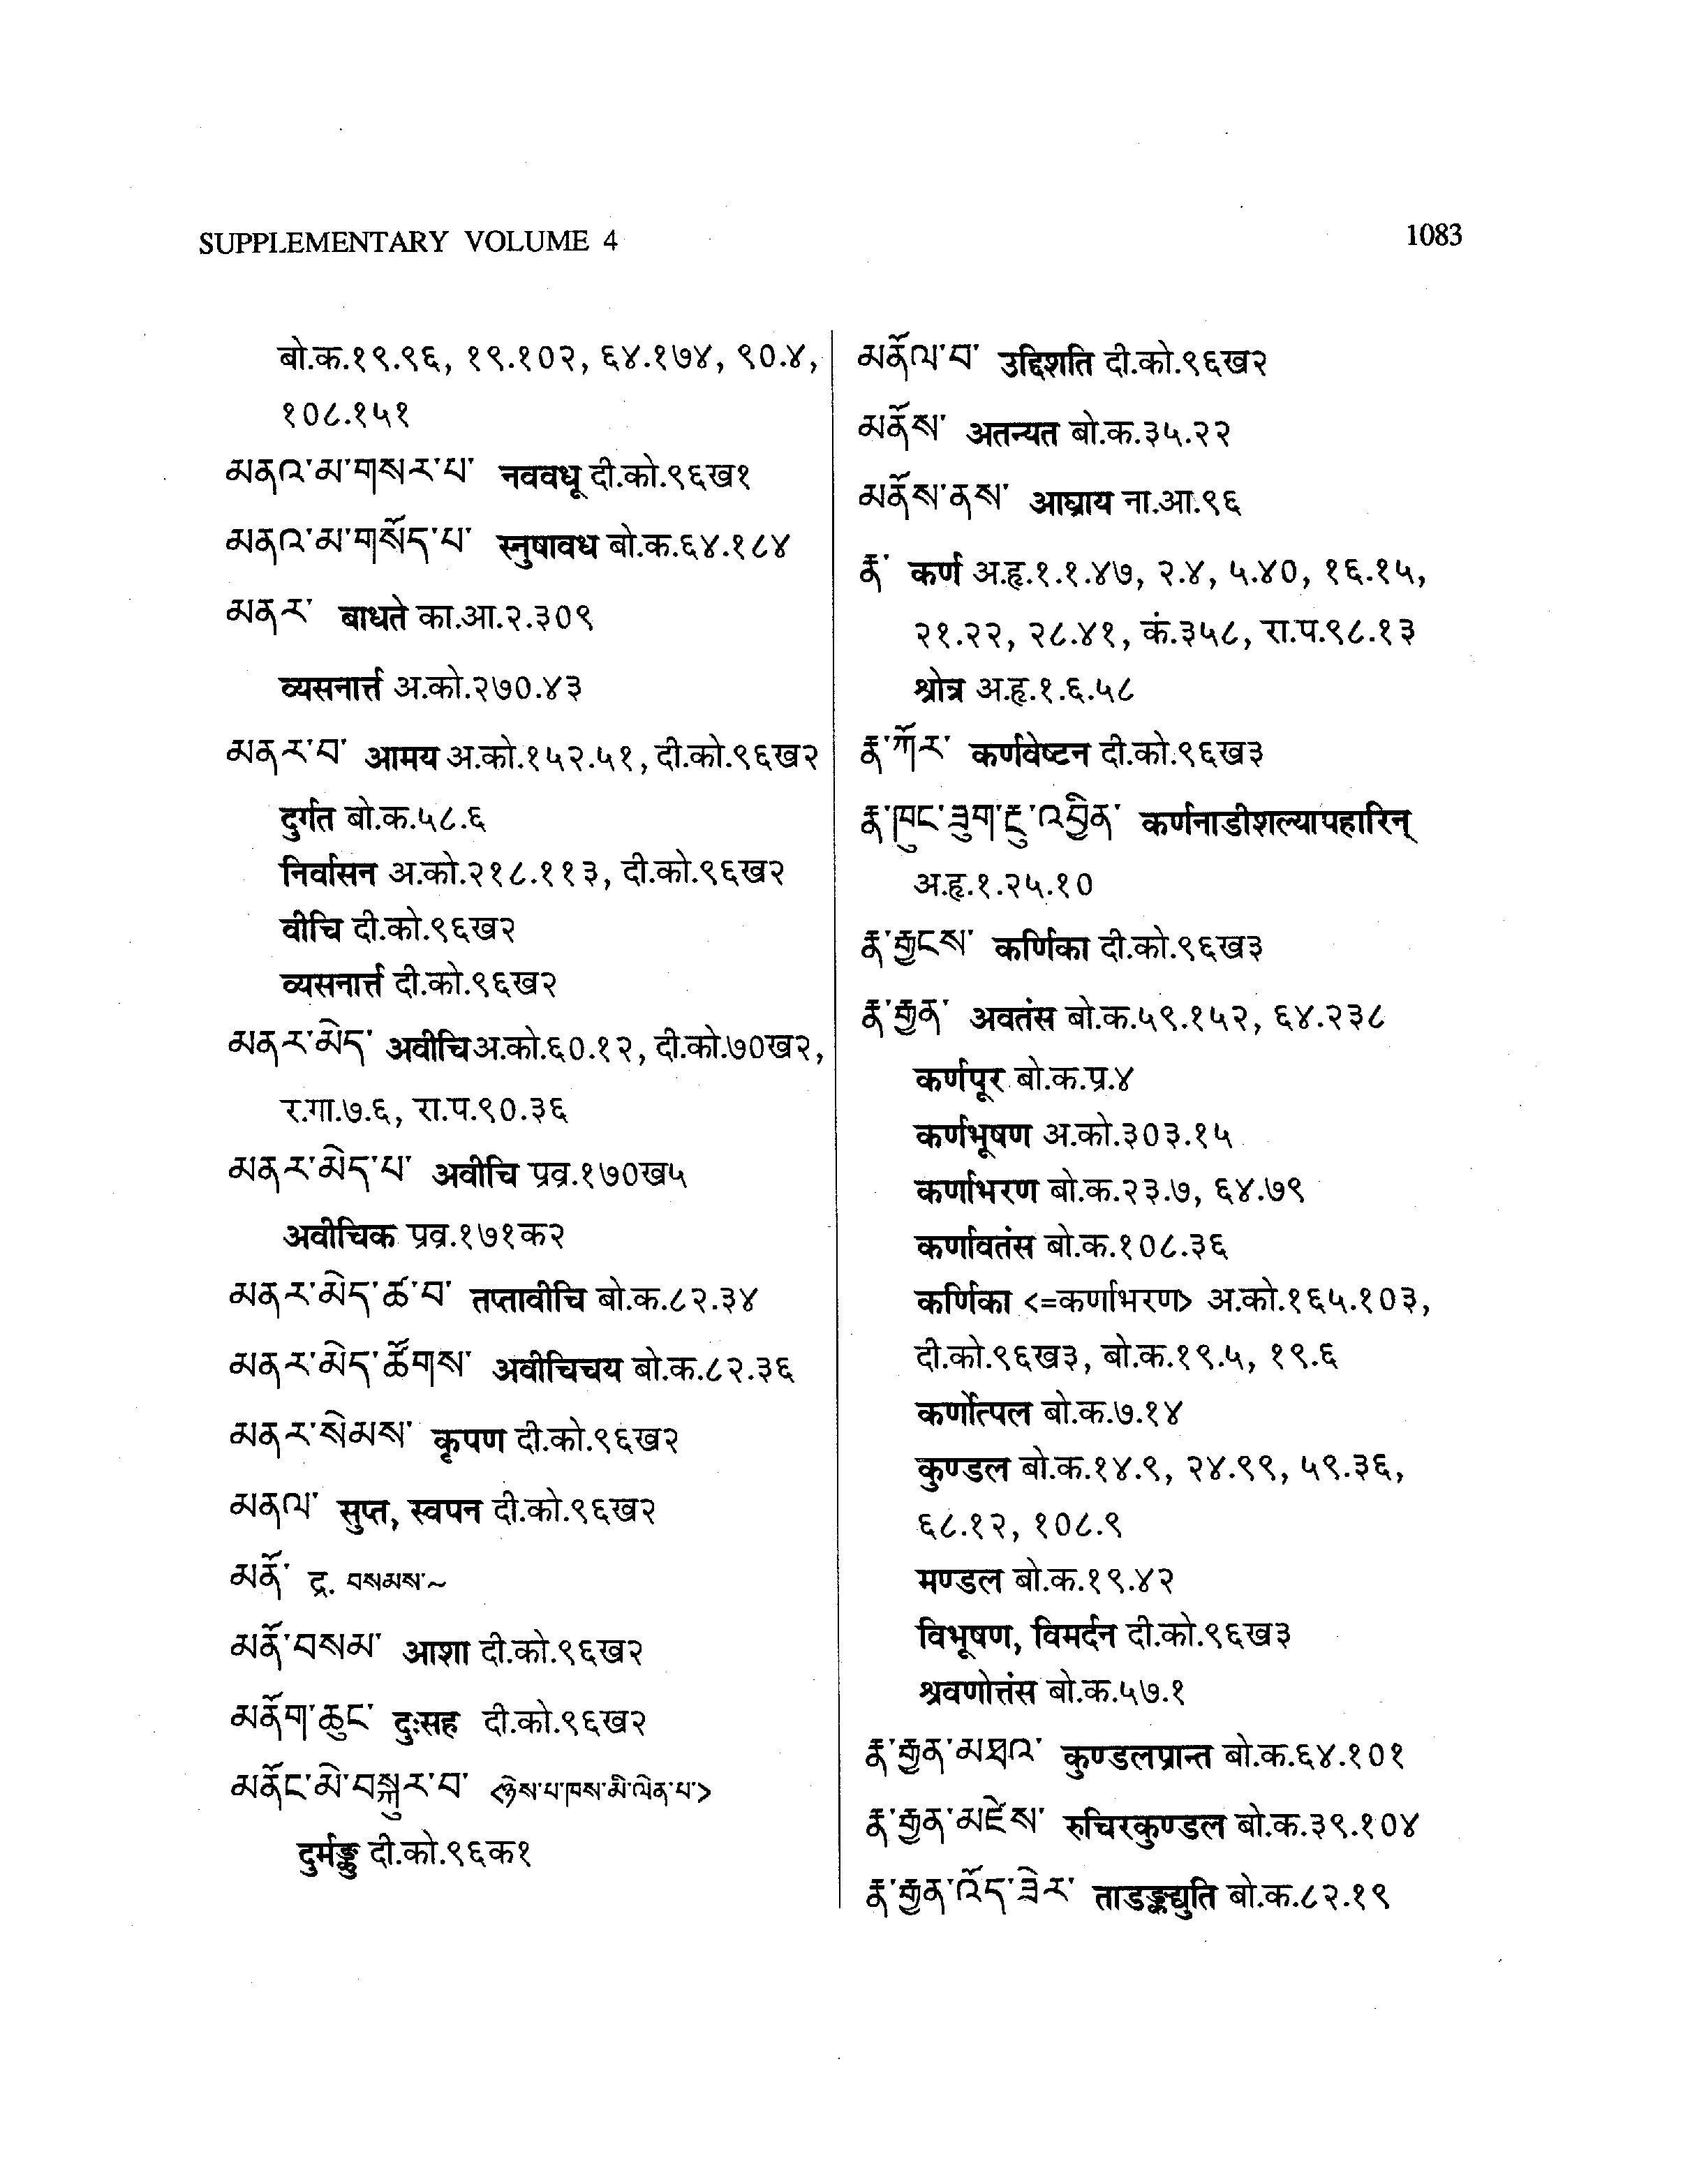 SUPPLEMENTARY VOLUME 4
1083
बो.क.१९.९६, १९.१०२, ६४.१७४, ९०.४,
१०८.१५१
མནའ་མ་གསར་པ་ नववधू दी.को.९६ख१
མནའ་མ་གསོད་པ་ स्नुषावध बो.क.६४.१८४
མནར་ बाधते का.आ.२.३०९
व्यसनार्त्त अ.को.२७०.४३
མནར་བ་ आमय अ.को.१५२.५१, दी.को.९६ख२
दुर्गत बो.क.५८.६
निर्वासन अ.को.२१८.११३, दी.को.९६ख२
वीचि दी.को.९६ख२
व्यसनार्त्त दी.को.९६ख२
མནར་མེད་ अवीचि अ.को.६०.१२, दी.को.७०ख२,
र.गा.७.६, रा.प.९०.३६
མནར་མེད་པ་ अवीचि प्रव्र.१७०ख५
अवीचिक प्रव्र.१७१क२
མནར་མེད་ཚ་བ་ तप्तावीचि बो.क.८२.३४
མནར་མེད་ཚོགས་ अवीचिचय बो.क.८२.३६
མནར་སེམས་ कृपण दी.को.९६ख२
མནལ་ सुप्त, स्वपन दी.को.९६ख२
མནོ་ द्र. བསམས་~
མནོ་བསམ་ आशा दी.को.९६ख२
མནོག་ཆུང་ दुःसह दी.को.९६ख२
མནོང་མེ་བསྐུར་བ་ <ཉེས་པ་ཁས་མི་ལེན་པ་>
दुर्मङ्कु दी.को.९६क१
མནོལ་བ་ उद्दिशति दी.को.९६ख२
མནོས་ अतन्यत बो.क.३५.२२
མནོས་ནས་ आघ्राय ना.आ.९६
རྣ་ कर्ण अ.हृ.१.१.४७, २.४, ५.४०, १६.१५,
२१.२२, २८.४१, कं.३५८, रा.प.९८.१३
श्रोत्र अ.हृ.१.६.५८
རྣ་ཀོར་ कर्णवेष्टन दी.को.९६ख३
རྣ་ཁུང་ཟུག་རྔུ་འབྱིན་ कर्णनाडीशल्यापहारिन्
अ.हृ.१.२५.१०
རྣ་རྒྱངས་ कर्णिका दी.को.९६ख३
རྣ་རྒྱན་ अवतंस बो.क.५९.१५२, ६४.२३८
कर्णपूर बो.क.प्र.४
कर्णभूषण अ.को.३०३.१५
कर्णाभरण बो.क.२३.७, ६४.७९
कर्णावतंस बो.क.१०८.३६
कर्णिका <=कर्णाभरण> अ.को.१६५.१०३,
दी.को.९६ख३, बो.क.१९.५, १९.६
कर्णोत्पल बो.क.७.१४
कुण्डल बो.क.१४.९, २४.९९, ५९.३६,
६८.१२, १०८.९
मण्डल बो.क.१९.४२
विभूषण, विमर्दन दी.को.९६ख३
श्रवणोत्तंस बो.क.५७.१
རྣ་རྒྱན་མཐའ་ कुण्डलप्रान्त बो.क.६४.१०१
རྣ་རྒྱན་མཛེས་ रुचिरकुण्डल बो.क.३९.१०४
རྣ་རྒྱན་འོད་ཟེར་ ताडङ्कद्युति बो.क.८२.१९